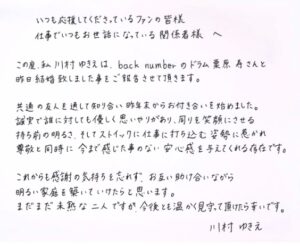 いつも応援してくださっているファンの皆様
仕事でいつもお世話になっている関係者様 へ
この度、私 川村ゆきえは、back numberのドラム栗原 寿さんと
昨日結婚致しました事をご報告させて頂きます。
共通の友人を通して知り合い昨年末からお付き合いを始めました。
誠実で誰に対しても優しく思いやりがあり、周りを笑顔にさせる
持ち前の明るさ、そしてストイックに仕事に打ち込む姿勢に惹かれ
尊敬と同時に今まで感じた事のない安心感を与えてくれる存在です。
これからも感謝の気持ちを忘れず、お互い助け合いながら
明るい家庭を築いていけたらと思います。
まだまだ未熟な二人ですが、今後とも温かく見守って頂けたら幸いです。
川村 ゆきえ